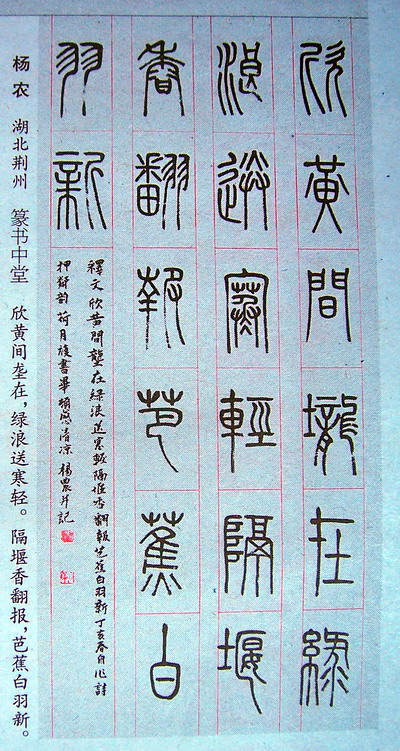 欣黄間壠在綠
浪送寒輕隔堰
香翻報芭蕉白
羽新
釋文欣黄間壟在綠浪送寒輕隔堰香翻報芭蕉白羽新丁亥春自作詩
押新韵荷月後書畢頓感清凉楊農并記
杨农 湖北荆州 篆书中堂 欣黄间垄在，绿浪送寒轻。隔堰香翻报，芭蕉白羽新。